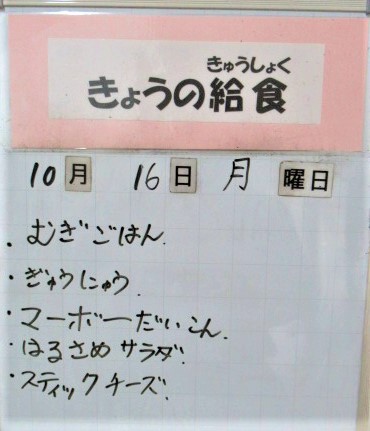 きゅうしょく
きょうの給食
10月 16日 月 曜日
・むぎごはん.
・ぎゅうにゅう.
・マーボーだいこん.
・はるさめサラダ.
・スティックチーズ.